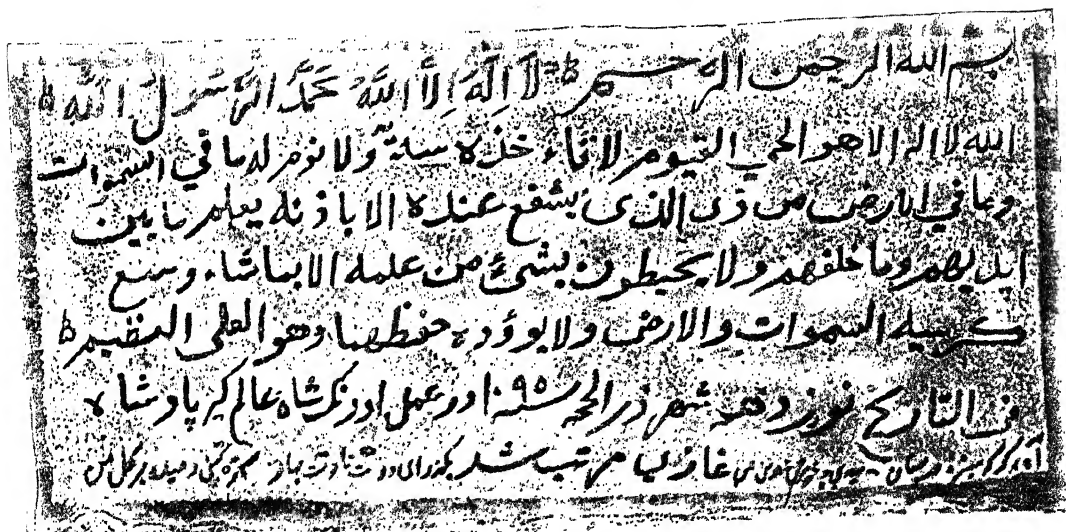 بسم الله الرحمن الرحيم لا اله الا الله محمد الرسول الله
الله لا اله الا هو الحي القيوم لا تاء خذه سنة ولا نوم له ما في السموات
وما في الارض من ذى الذى يشفع عنده الا باذنه يعلم ما بين
ايديهم وما خلفهم ولا يحيطون بشئ من علمه الا بما شاء وسع
كرسيه السموات والارض ولا يوؤده حفظهما وهو العلى العظيم
فى التاريخ نوزدهم شهر ذى الحجه سنه ١٠٩٥ در عمل اورنگ شاه عالم گير پادشاه
غازى مرتب شد